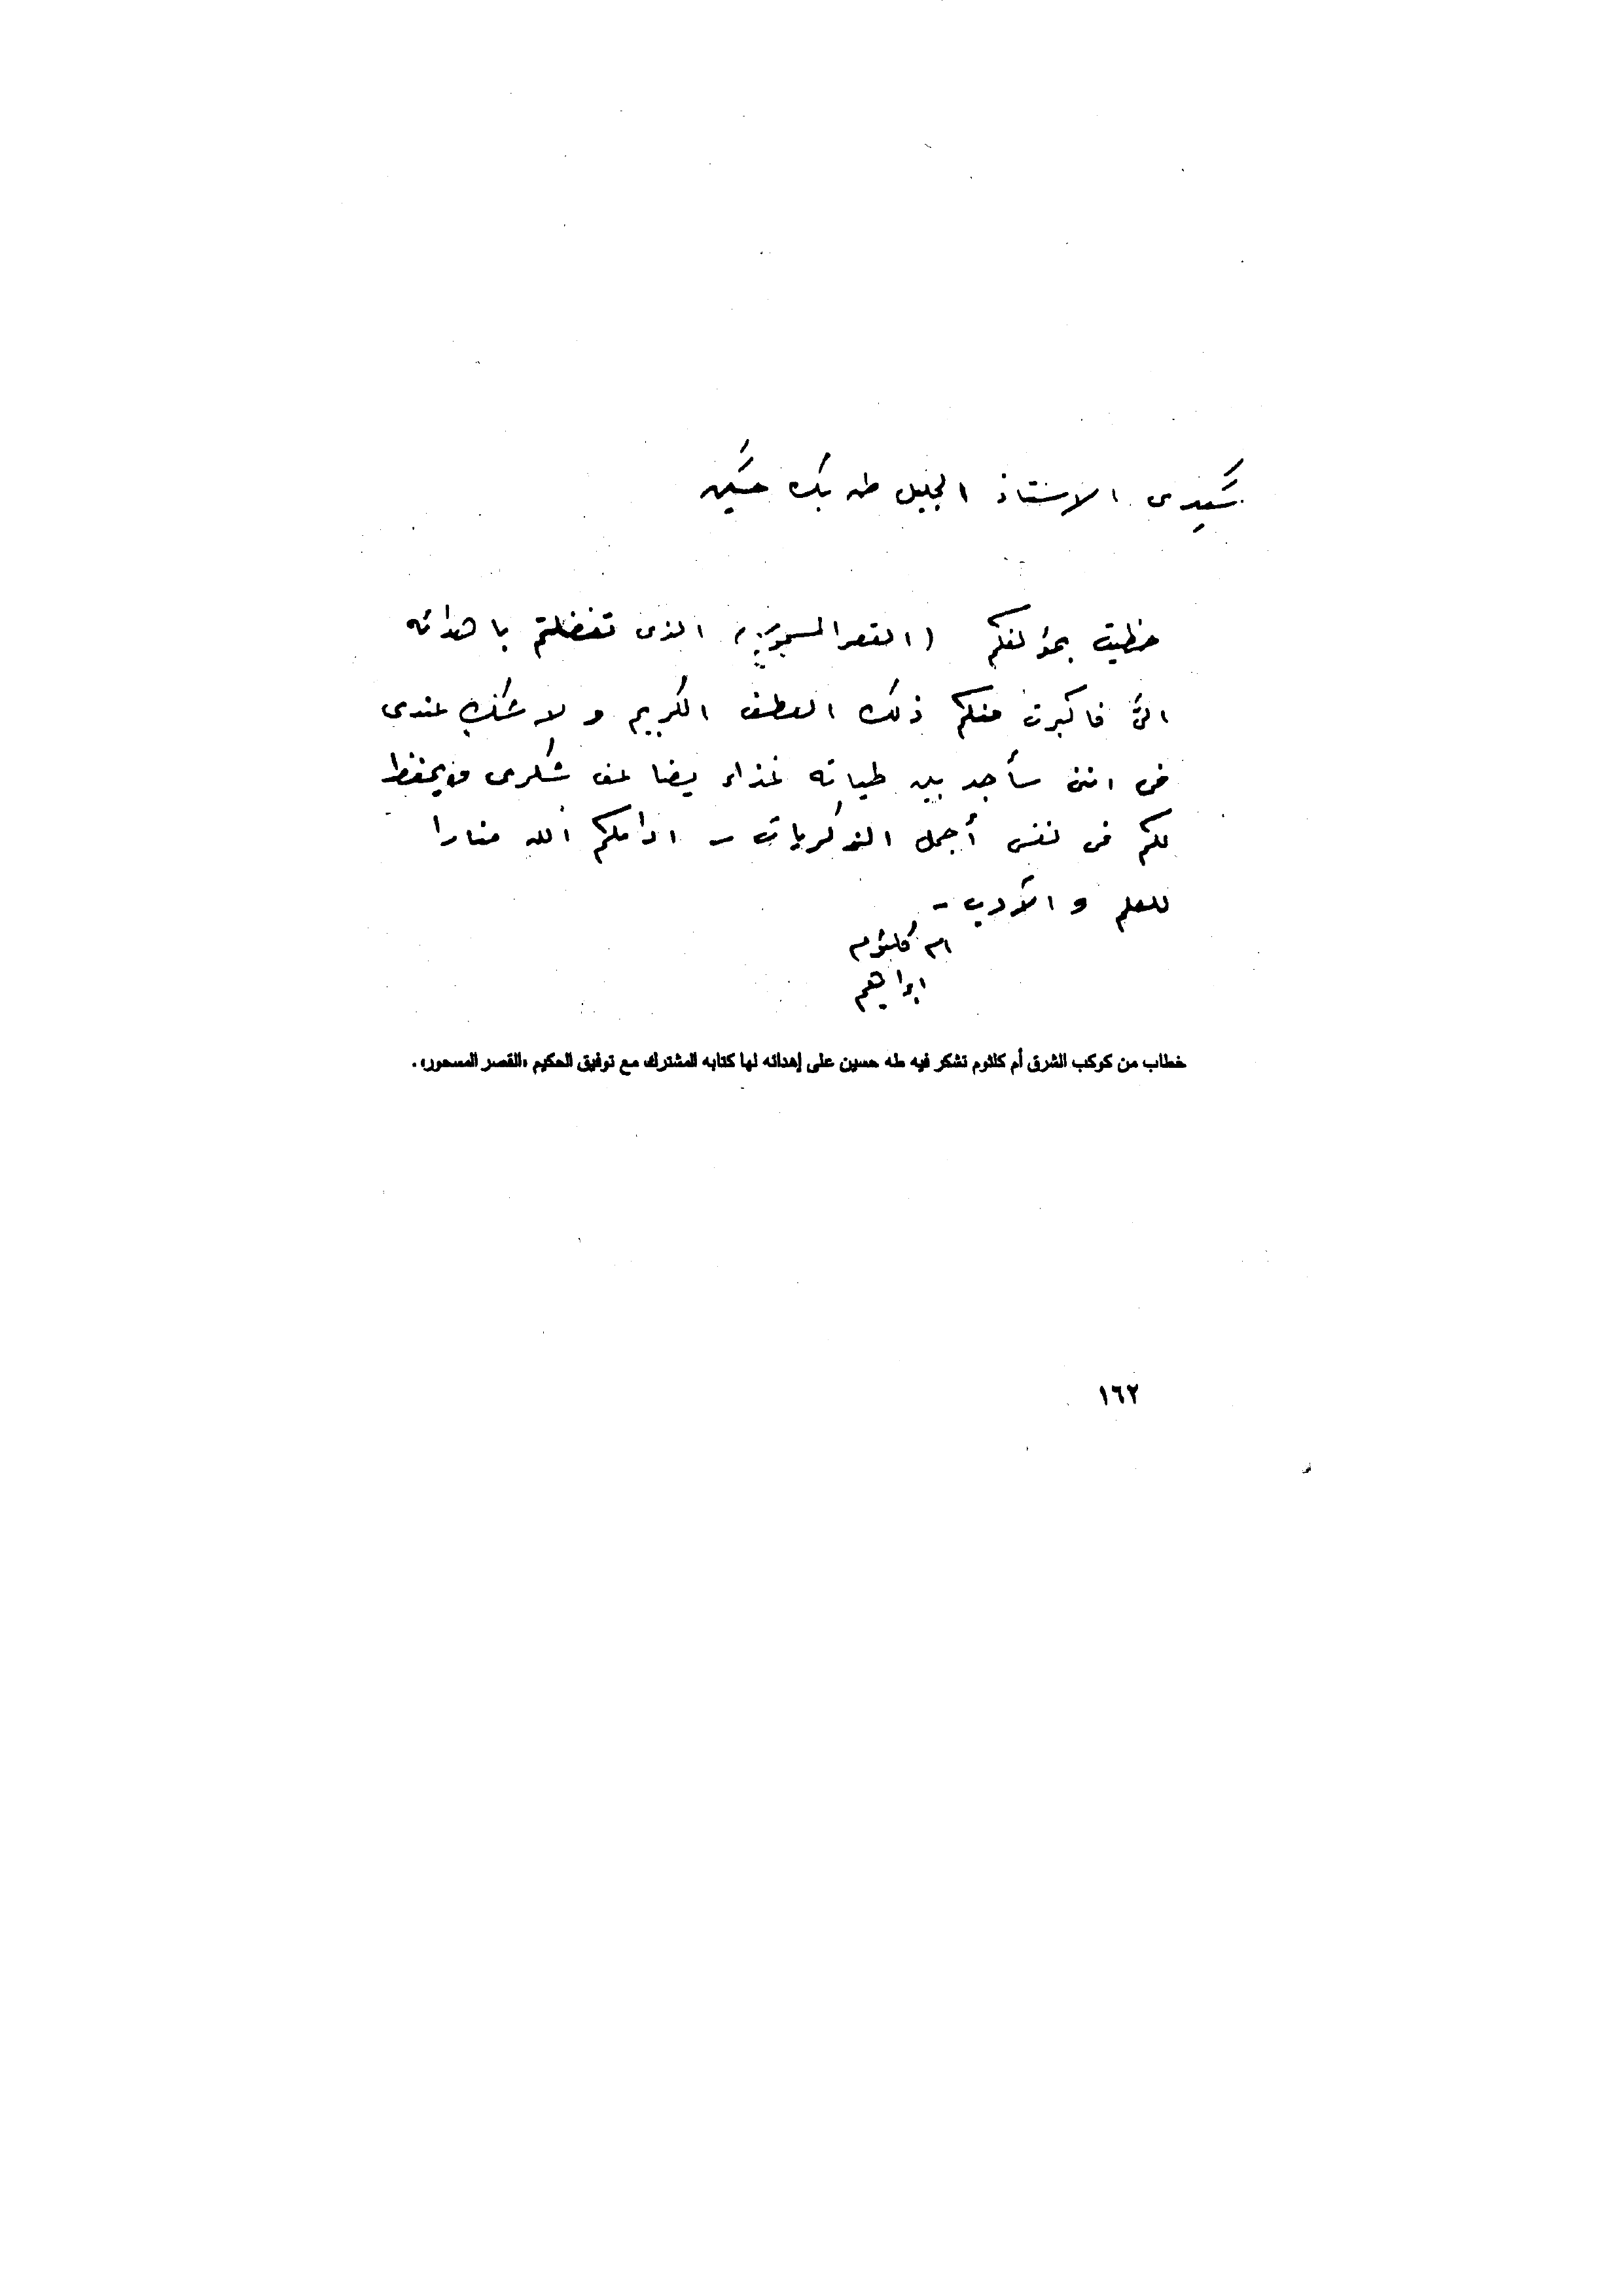 سيدى الاستاذ الجليل طه بك حسين
حظيت بمؤلفكم (القصر المسحور) الذى تفضلتم باهدائه
الىّ فاكبرت منكم ذلك العطف الكريم ولا شك عندى
فى اننى سأجد بين طياته غذاء يضاعف شكرى ويحفظ
لكم فى نفسى أجمل الذكريات – ادامكم الله منارا
للعلم و الأدب –
ام كلثوم
ابراهيم
خطاب من كوكب الشرق أم كلثوم تشكر فيه طه حسين على إهدائه لها كتابه المشترك مع توفيق الحكيم «القصر المسحور» .
١٦٢